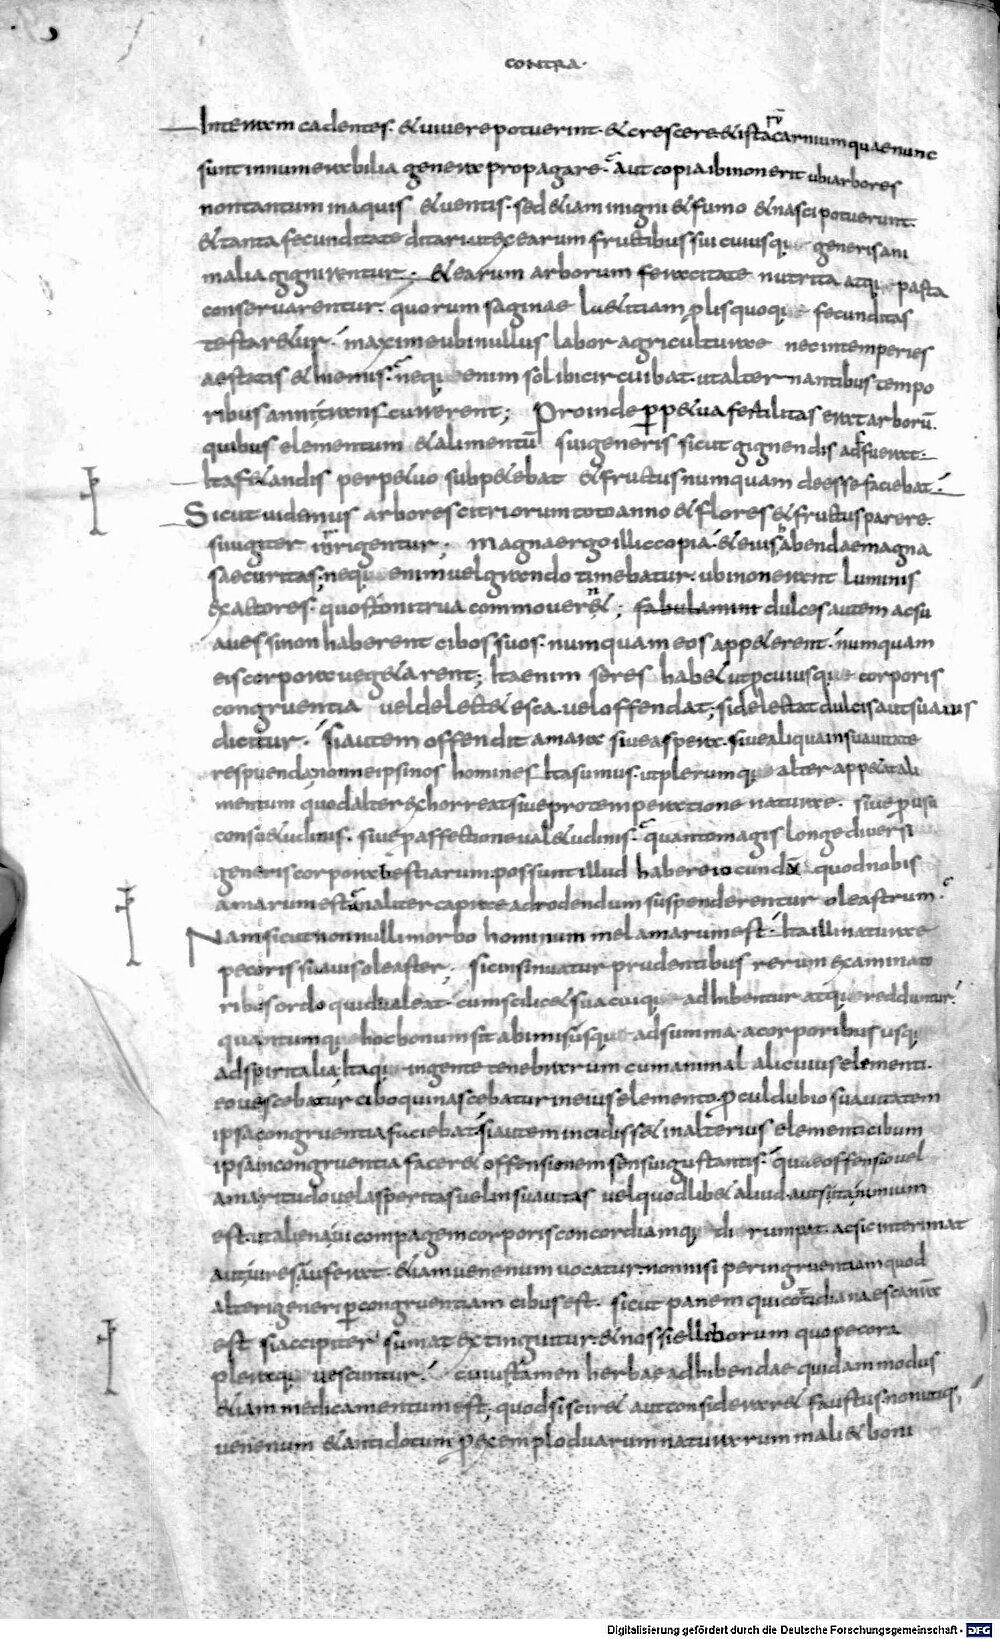 CONTRA·
In terram cadentes· et vivere potuerint· et crescere· et ista carnium quae nunc
sunt innumerabilia genera propagare· aut copia ibi non erit ubi arbores
non tantum in aquis et ventis· sed etiam in igni et fumo et nasci potuerunt·
et tanta fecunditate ditari ut ex earum fructibus sui cuiusque generis ani
malia gignerentur· et earum arborum feracitate nutrita atque pasta
conservarentur· quorum saginae laetitiam prolis quoque fecunditas
testaretur· maxime ubi nullus labor agriculturae nec intemperies
aestatis et hiemis· neque enim sol ibi circuibat· ut alternantibus tempo
ribus anni transcurrerent; Proinde perpetua fertilitas erat arborū·
quibus elementum et alimentū sui generis sicut gignendis adfuerat·
Ita fetandis perpetuo subpetebat et fructus numquam deesse faciebat·
Sicut videmus arbores citriorum toto anno et flores et fructus parere·
si iugiter inrigentur; magna ergo illic copia· et eius habendae magna
saecuritas; neque enim vel grando timebatur· ubi non erant luminis
exactores· quos tonitrua commoverent; fabulamini dulces autem ac su
aves si non haberent cibos suos· numquam eos appeterent· numquam
eis corpora vegetarent; Ita enim se res habet ut pro cuiusque corporis
congruentia vel delectet esca· vel offendat; si delectat dulcis aut suavis
dicitur· si autem offendit amara sive aspera· sive aliqua insuavitate
respuenda; nonne ipsi nos homines Ita sumus· ut plerumque alter appetat ali
mentum quod alter exhorreat sive pro temperatione naturae· sive pro usu
consuetudinis· sive pro affectione valetudinis· quanto magis longe diversi
generis corpora bestiarum· possunt illud habere iocundū quod nobis
amarum est· an aliter caprae ad rodendum suspenderentur oleastrum·
Nam sicut nonnulli morbo hominum mel amarum est· Ita illi naturae
pecoris suavis oleaster; sic insinuatur prudentibus rerum examinato
ribus ordo quid valeat· cum scilicet sua cuique adhibentur atque redduntur·
quantumque hoc bonum sit ab imis usque ad summa· a corporibus usque
ad spiritalia; Itaque in gente tenebrarum cum animal alicuius elementi·
eo vescebatur cibo qui nascebatur in eius elemento· proculdubio suavitatem
ipsa congruentia faciebat; si autem incidisset in alterius elementi cibum
ipsa incongruentia faceret offensionem sensui gustantis· quae offensio vel
amaritudo vel asperitas vel insuavitas vel quodlibet aliud· aut si ita nimium
est· ut aliena vi compagem corporis concordiamque dirumpat· ac sic interimat
aut vires auferat· etiam venenum vocatur· non nisi per ingruentiam quod
alteri generi per congruentiam cibus est· sicut panem qui cotidiana esca nr̄a
est si accipiter sumat extinguitur· et nos si elliborum quo pecora
pleraque vescuntur· cuius tamen herbae adhibendae quidam modus
etiam medicamentum est; quod si sciret aut consideraret faustus· non utiq;
venenum et antidotum pro exemplo duarum naturarum mali et boni
Digitalisierung gefördert durch die Deutsche Forschungsgemeinschaft - DFG